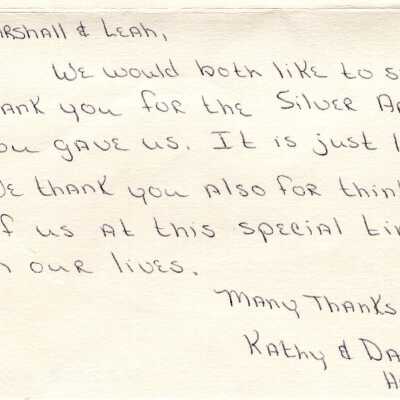 arshall & Leah,
We would both like to s
hank you for the Silver Ap
ou gave us. It is just l
We thank you also for think
f us at this special tim
n our lives.
Many Thanks
Kathy & Da
H